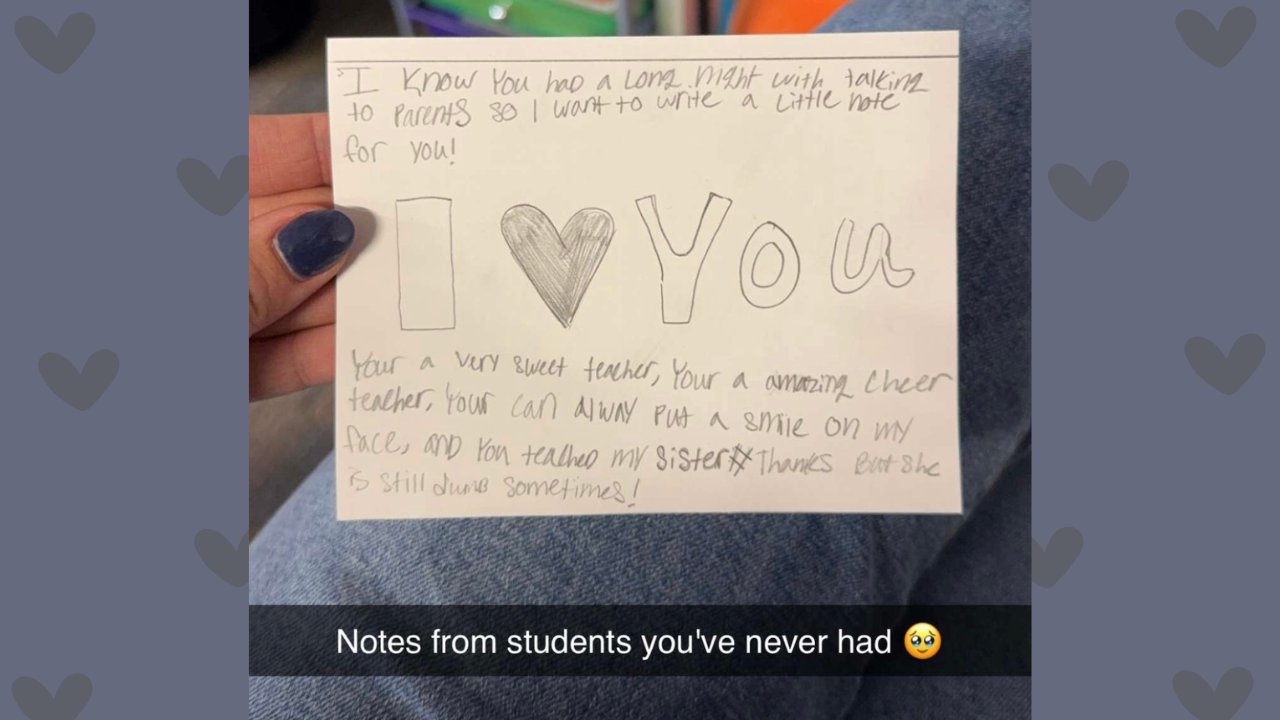 I Know You had a Long night with talking
to Parents so I want to write a Little note
for you!
I ♥ You
Your a very sweet teacher, Your a amazing Cheer
teacher, Your can Alway Put a smile on my
face, and You teached my sister Thanks But she
is still dumb sometimes!
Notes from students you've never had 🥹